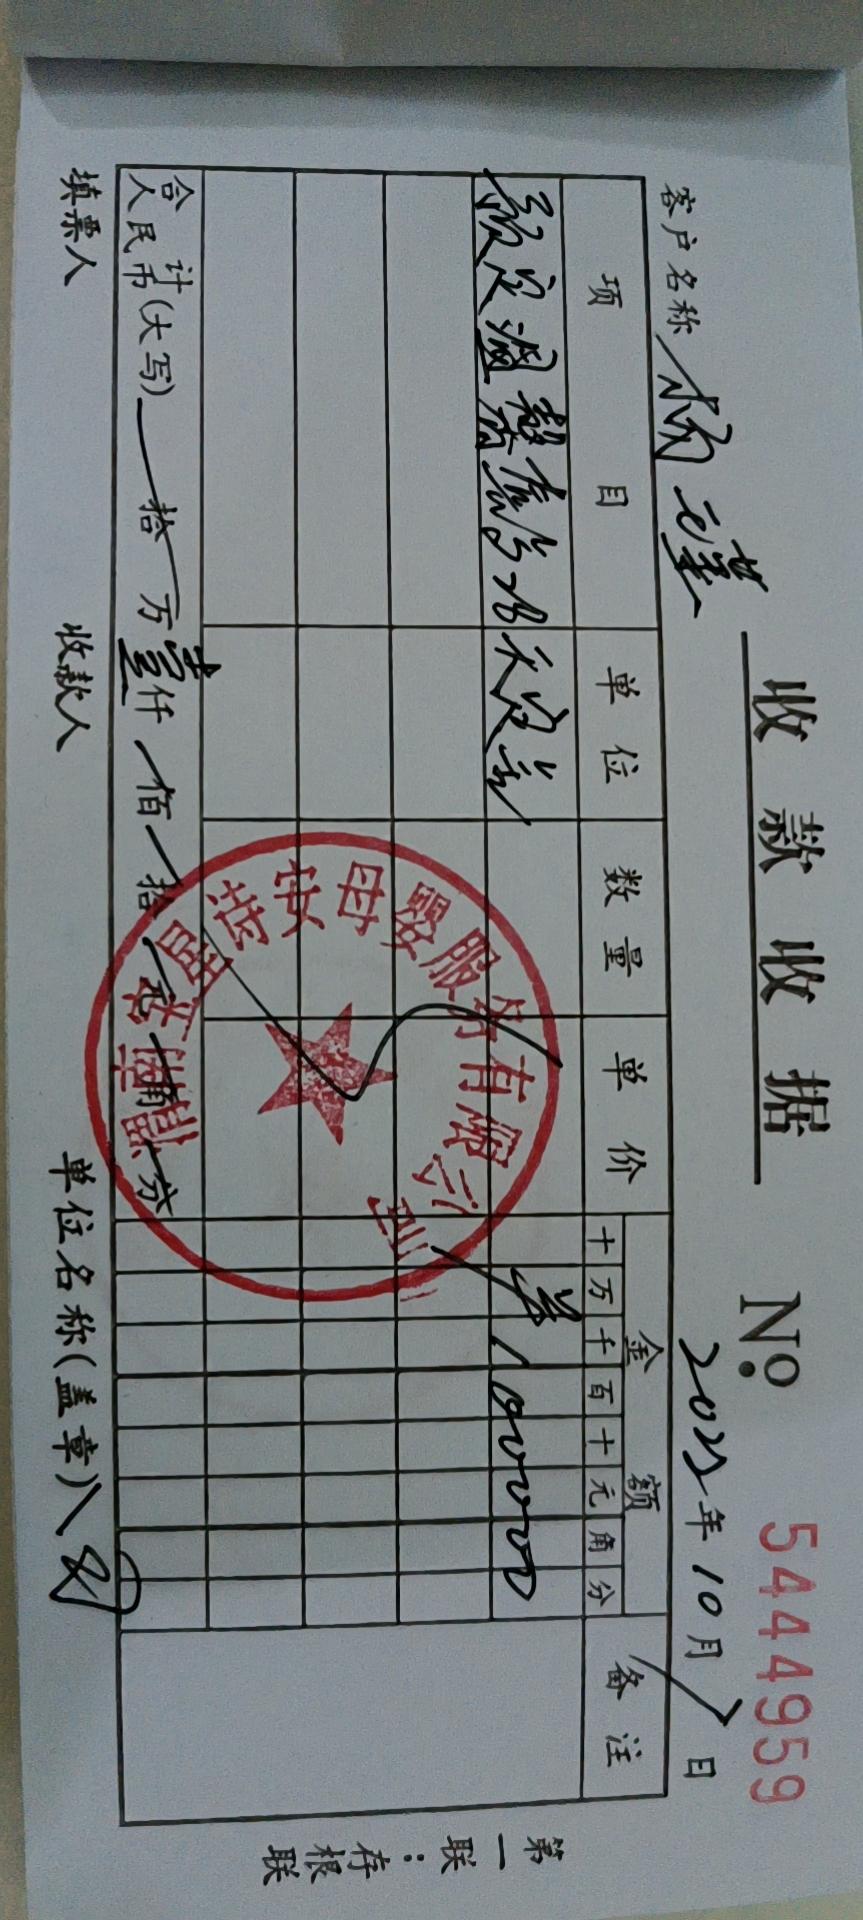 收款收据
No 5444959
客户名称 杨 2022年10月7日
项目 单位 数量 单价 金额 备注
十万千百十元角分
预定温馨 28天定金 羊100000
合计人民币(大写) 拾 万 壹仟 佰 拾 元 角 分
填票人 收款人 单位名称(盖章)
第一联:存根联
母婴服务有限公司